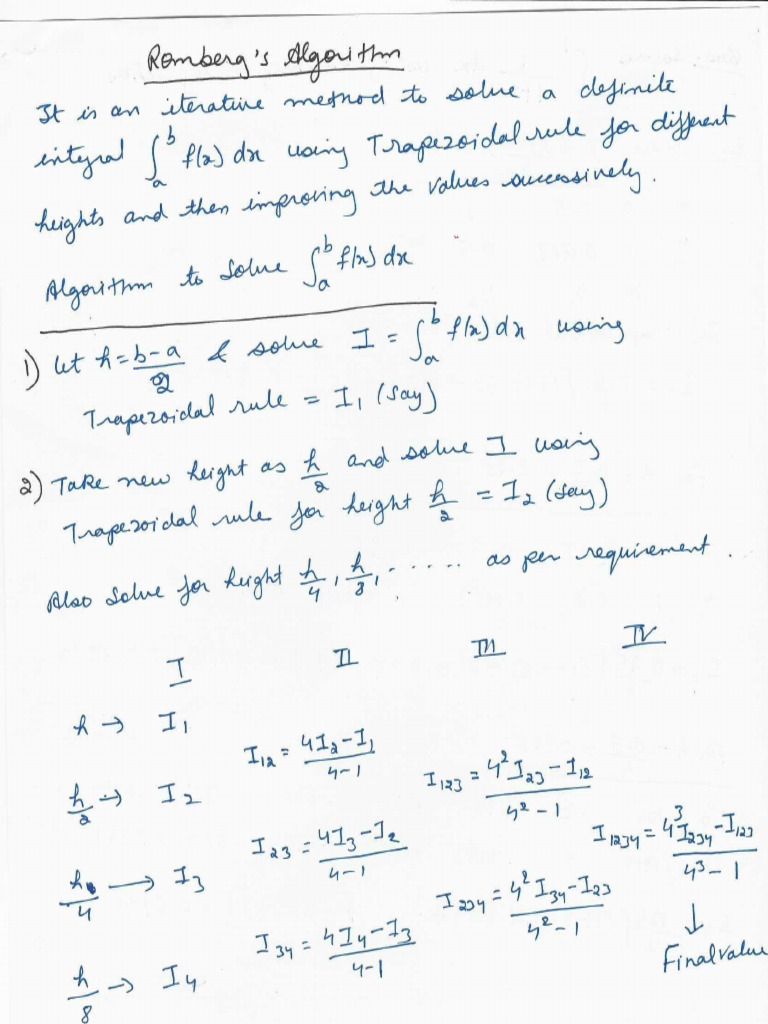 Romberg's Algorithm
It is an iterative method to solve a definite
integral ∫_a^b f(x) dx using Trapezoidal rule for different
heights and then improving the values successively.
Algorithm to Solve ∫_a^b f(x) dx
1) let h = (b-a)/2 & solve I = ∫_a^b f(x) dx using
Trapezoidal rule = I₁ (say)
2) Take new height as h/2 and solve I using
Trapezoidal rule for height h/2 = I₂ (say)
Also solve for height h/4, h/8, ...... as per requirement.
I II III IV
h → I₁
I₁₂ = (4I₂ - I₁)/(4-1)
h/2 → I₂
I₁₂₃ = (4² I₂₃ - I₁₂)/(4² - 1)
I₂₃ = (4I₃ - I₂)/(4-1)
I₁₂₃₄ = (4³ I₂₃₄ - I₁₂₃)/(4³ - 1)
h/4 → I₃
I₂₃₄ = (4² I₃₄ - I₂₃)/(4² - 1)
↓
Final value
I₃₄ = (4I₄ - I₃)/(4-1)
h/8 → I₄